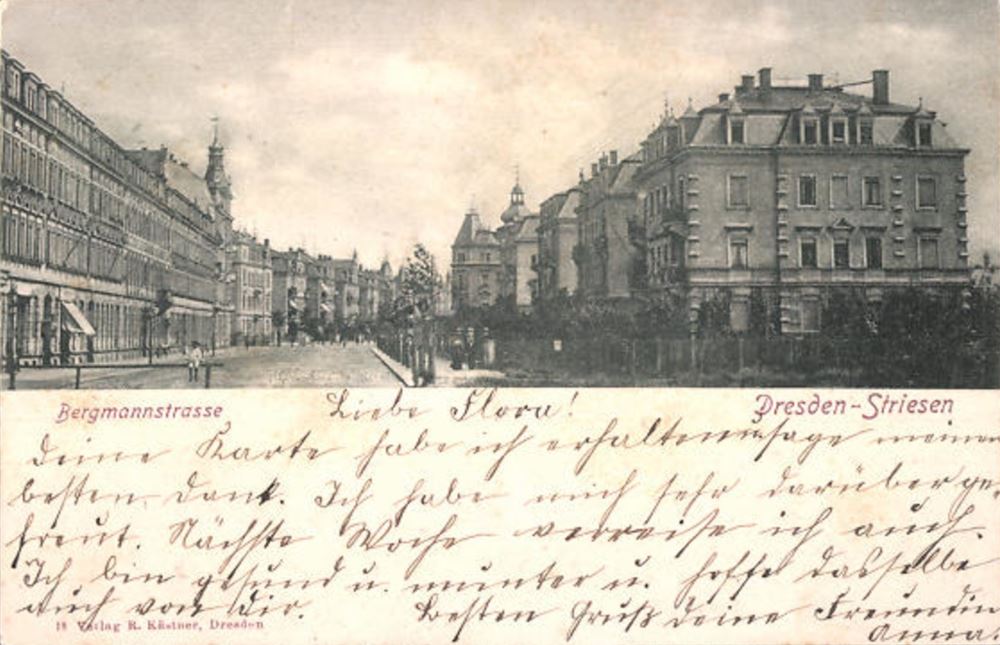 Bergmannstrasse
Dresden-Striesen
Liebe Flora!
deine Karte habe ich erhalten u. sage meinen
besten Dank. Ich habe mich sehr darüber ge-
freut. Nächste Woche verreise ich auch.
Ich bin gesund u. munter u. hoffe dasselbe
auch von dir. Besten Gruß deine Freundin
Anna.
18 Verlag R. Kästner, Dresden